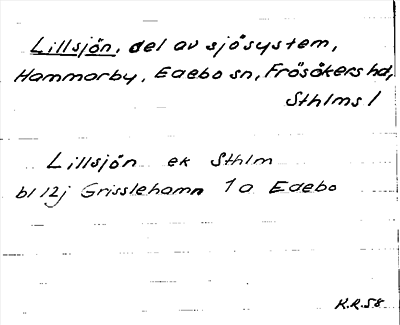 Lillsjön, del av sjösystem,
Hammarby, Edebo sn, Frösåkers hd,
Sthlms l
Lillsjön ek Sthlm
bl 12j Grisslehamn 1a Edebo
K.R.58